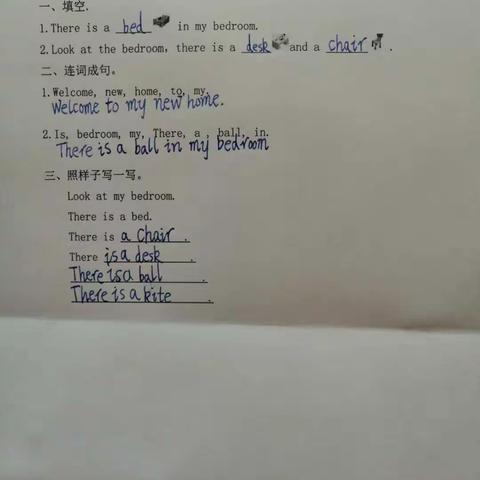 一、填空.
1.There is a bed in my bedroom.
2.Look at the bedroom, there is a desk and a chair .
二、连词成句。
1.Welcome, new, home, to, my.
Welcome to my new home.
2.Is, bedroom, my, There, a , ball, in.
There is a ball in my bedroom
三、照样子写一写。
Look at my bedroom.
There is a bed.
There is a chair .
There is a desk .
There is a ball .
There is a kite .